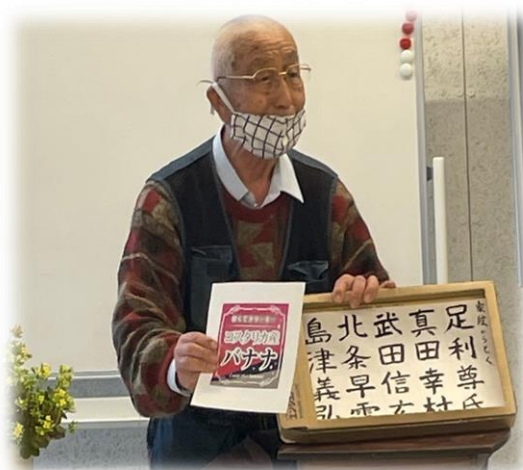 コスタリカ産
バナナ
足利尊氏
真田幸村
武田信玄
北条早雲
島津義弘